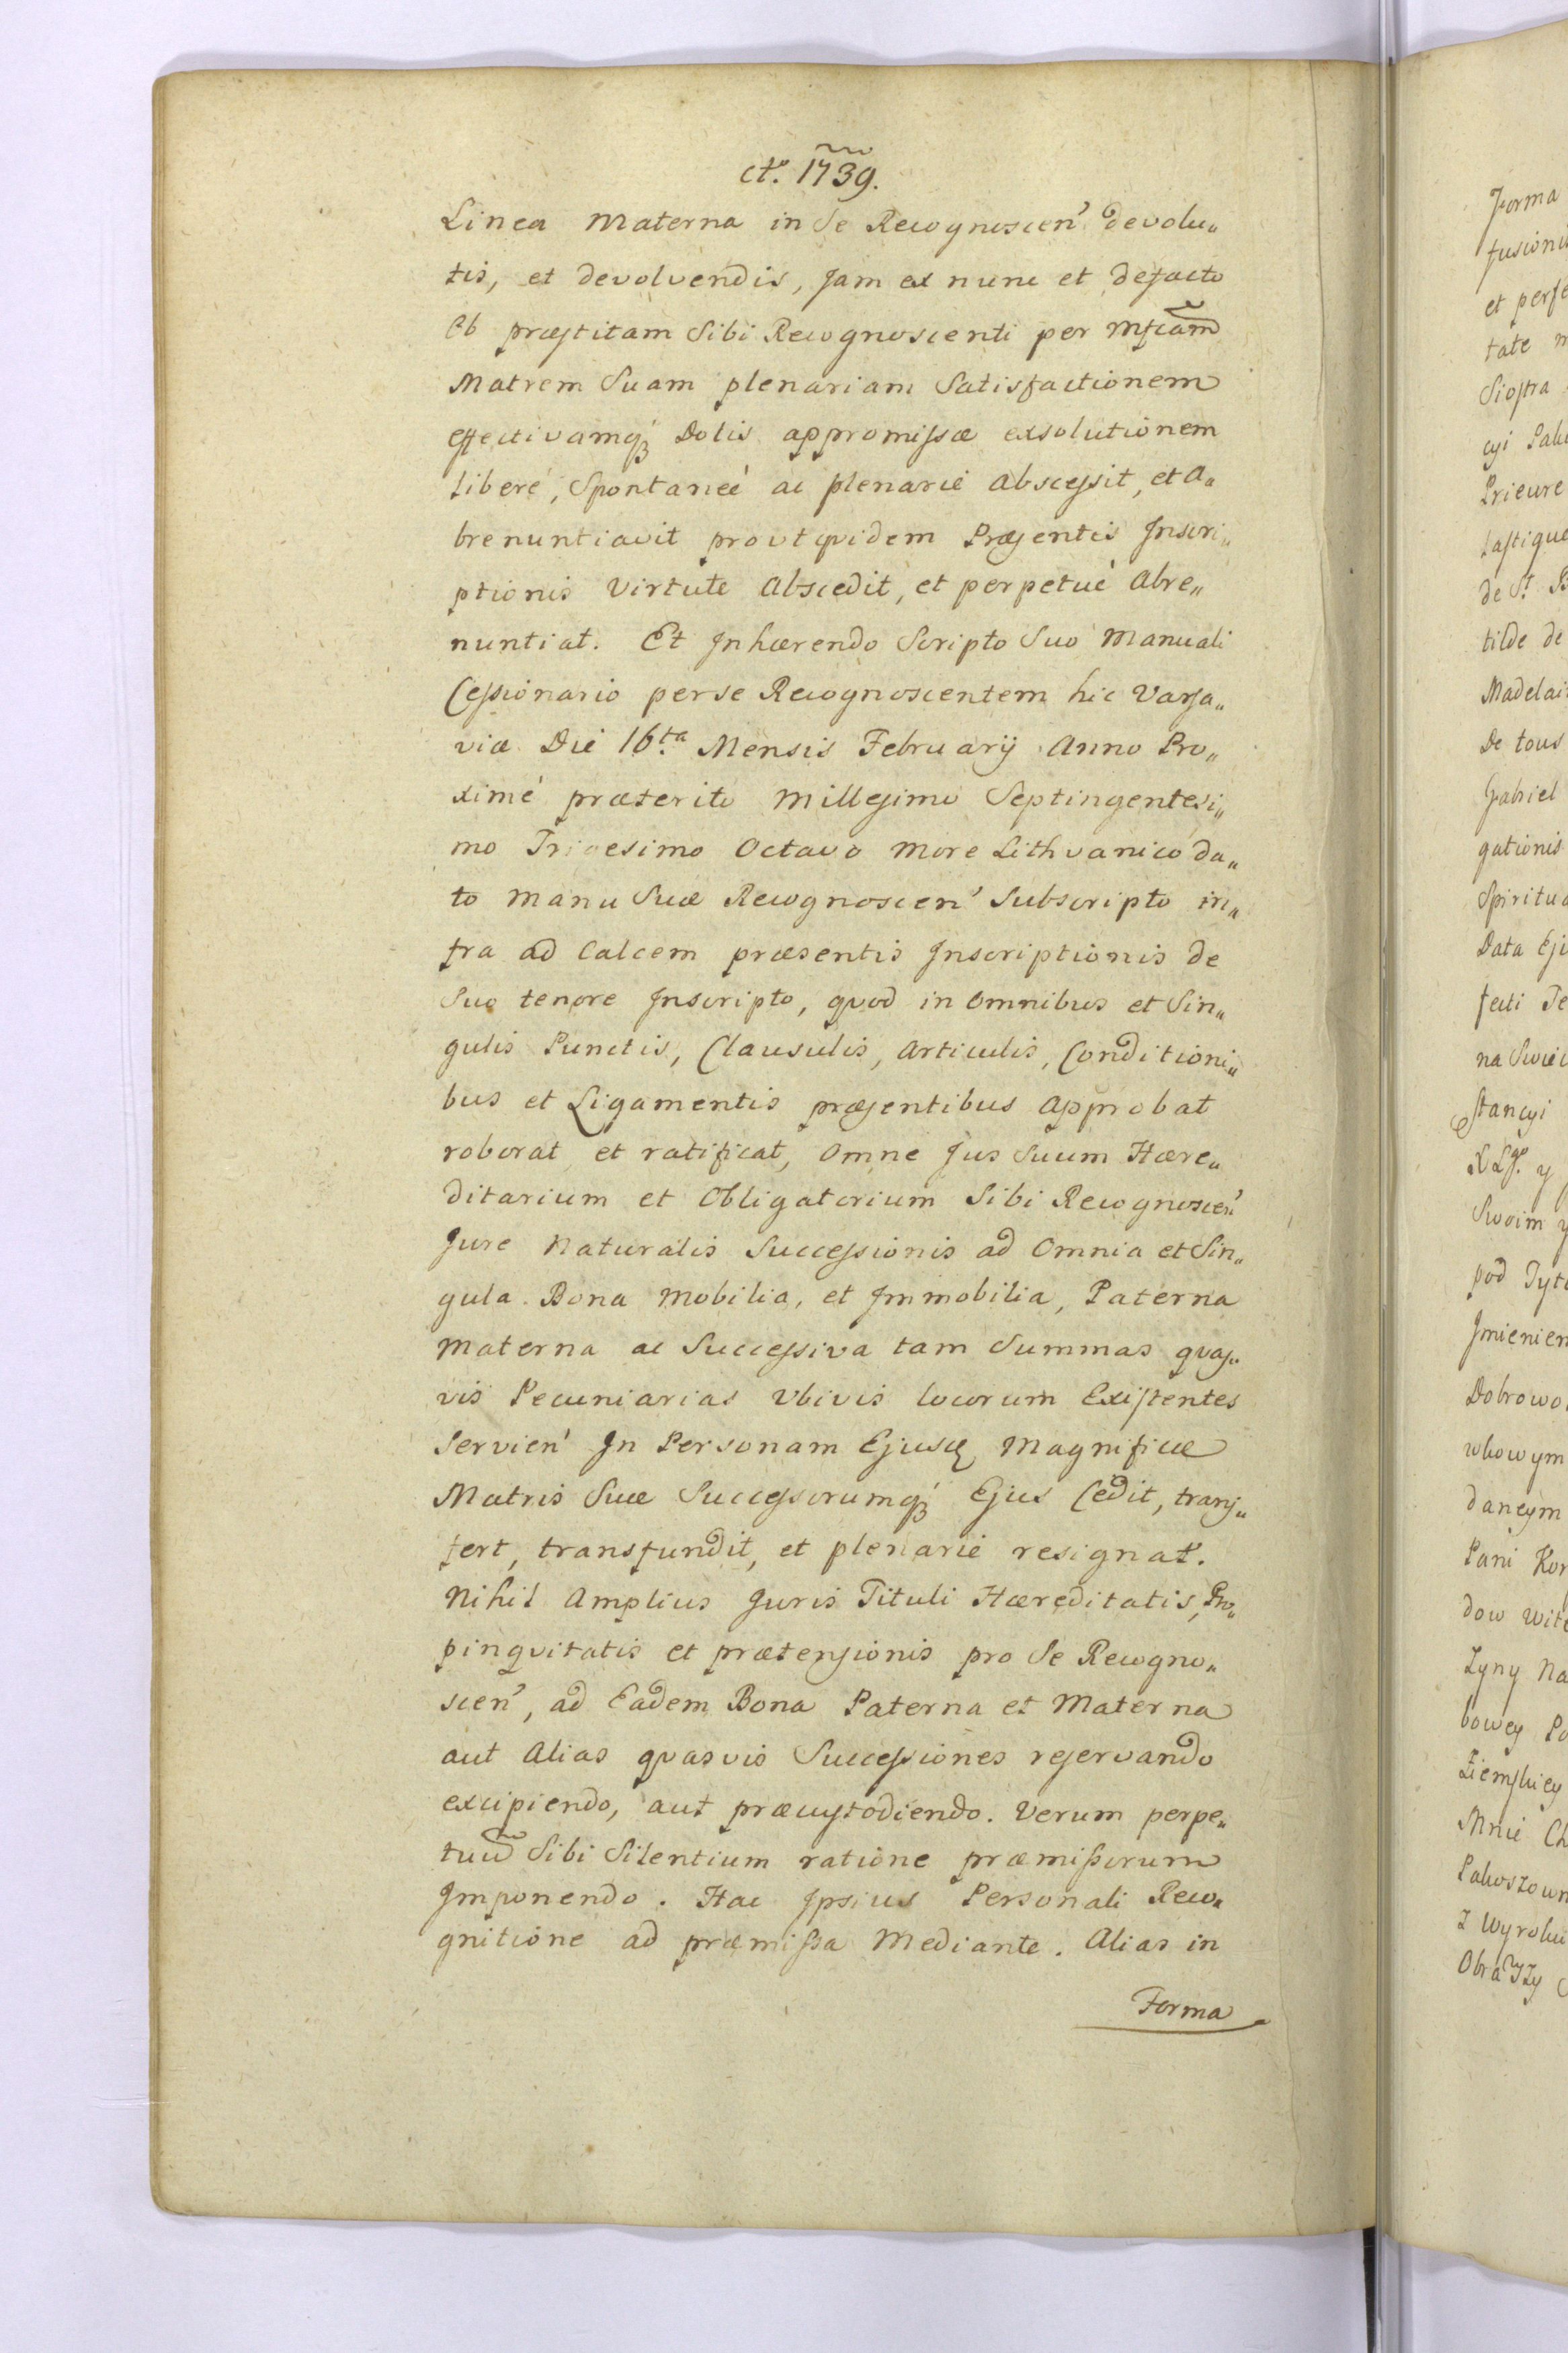 ct. 1739.
Linea Materna in Se Recognoscen' devolu„
tis, et devolvendis, Jam ex nunc et defacto
Ob præstitam Sibi Recognoscenti per Mfcam̃
Matrem Suam plenariam Satisfactionem
effectivamq; Dotis appromissæ exsolutionem
liberé, Spontaneé ac plenarié abscessit, et a„
brenuntiavit provt qvidem Præsentis Inscri„
ptionis Virtute Abscedit, et perpetué Abre„
nuntiat. Et Inhærendo Scripto Suo Manuali
Cessionario per se Recognoscentem hic Varsa„
viæ Die 16ta Mensis Februarij Anno Pro„
ximé præterito Millesimo Septingentesi„
mo Trigesimo Octavo More Lithvanico da„
to Manu Suæ Recognoscen' Subscripto in„
fra ad Calcem præsentis Inscriptionis de
Suo tenore Inscripto, qvod in Omnibus et Sin„
gulis Punctis, Clausulis, Articulis, Conditioni„
bus et Ligamentis præsentibus Approbat
roborat et ratificat, Omne Jus Suum Hære„
ditarium et Obligatorium Sibi Recognoscen'
Jure Naturalis Successionis ad Omnia et Sin„
gula Bona Mobilia, et Immobilia, Paterna
Materna ac Successiva tam Summas qvas„
vis Pecuniarias Vbivis locorum Existentes
Servien' In Personam Ejusq Magnificæ
Matris Suæ Successorumq; Ejus Cedit, trans„
fert, transfundit, et plenarié resignat.
Nihil Amplius Juris Tituli Hæreditatis, Pro„
pinqvitatis et prætensionis pro Se Recogno„
scen', ad Eadem Bona Paterna et Materna
aut Alias qvasvis Successiones reservando
excipiendo, aut præcustodiendo. Verum perpe„
tuũ Sibi Silentium ratione præmissorum
Imponendo. Hac Ipsius Personali Reco„
gnitione ad præmissa Mediante. Alias in
Forma
Forma
et perfe
tate
Siostra
Prieure
de St. B
tilde de
Madelai
De tous
Gabriel
gationis
Spiritua
Data Eju
feci Te
na Swiec
stancyi
Swoim y
pod Tytu
Imienien
Dobrowol
daneym
Pani Kor
dow
Zyny Na
bowey Po
Ziemskiey
Mnie Ch